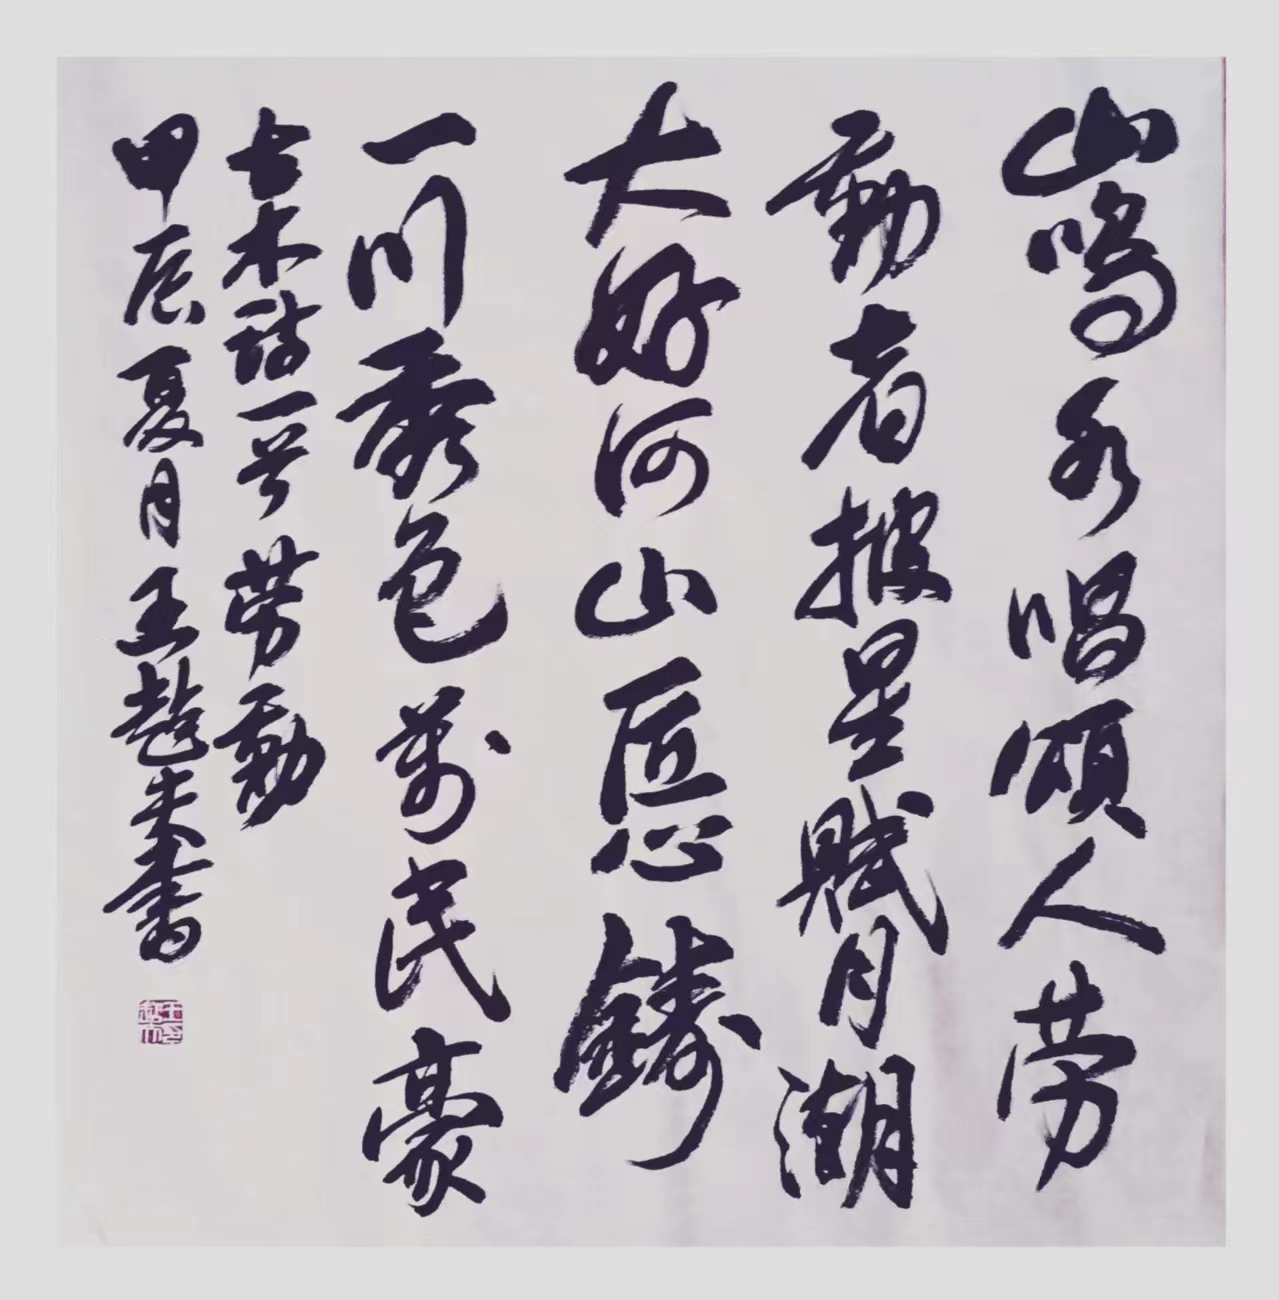 山鸣水唱颂人劳
勤者披星赋月潮
大好河山匠心铸
一川秀色万民豪
古木诗一首劳动
甲辰夏月王超
书